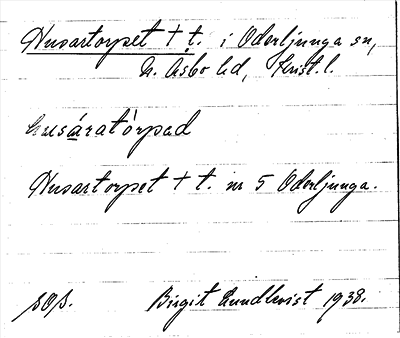 Husartorpet † t. i Oderljunga sn,
N. Åsbo hd, Krist. l.
husáratòrpad
Husartorpet † t. nr 5 Oderljunga.
Birgit Lundkvist 1938.